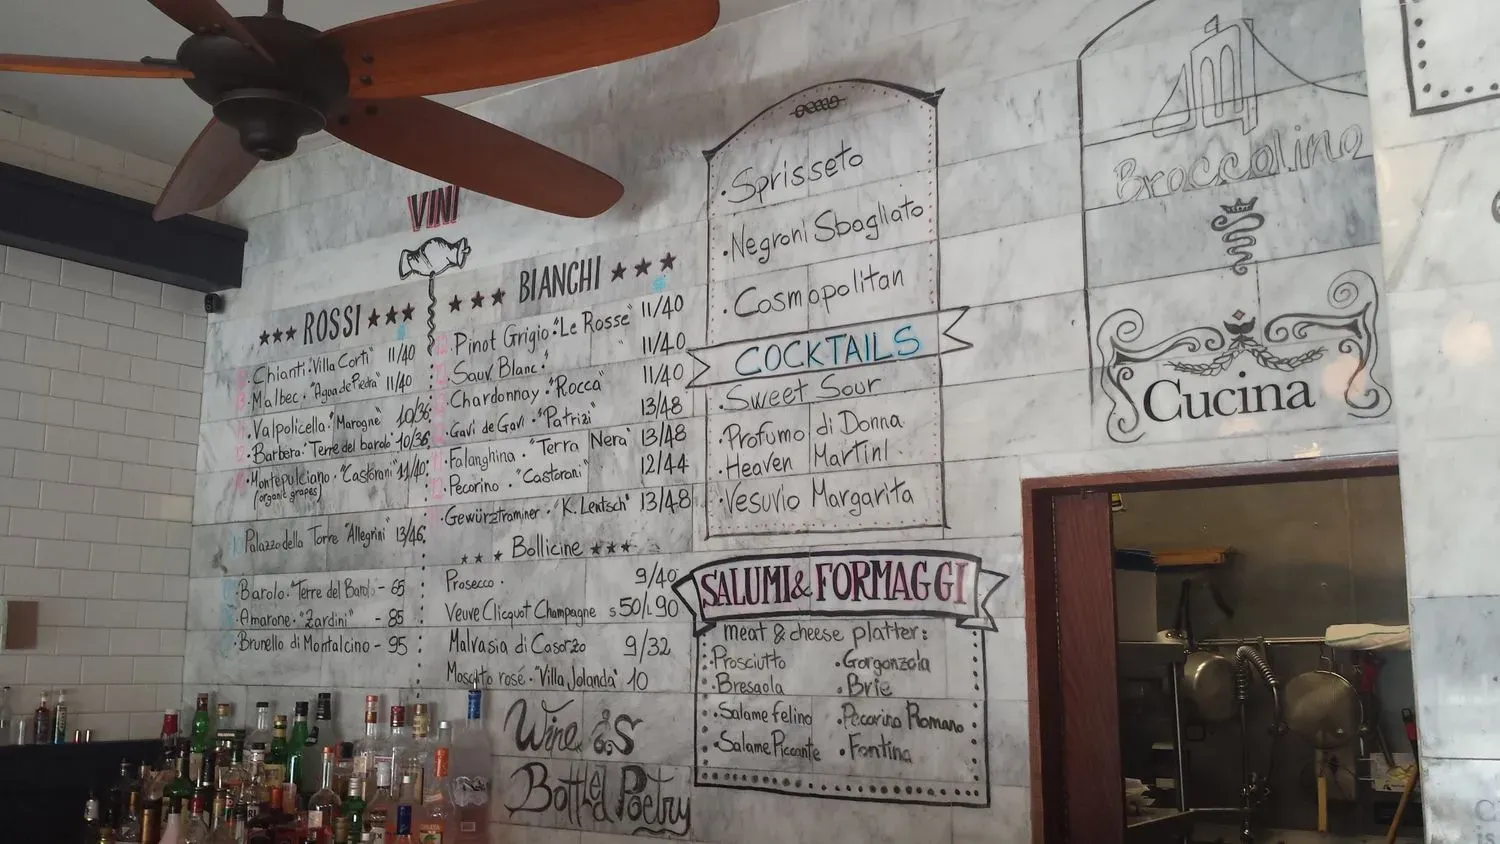 VINI
★★★ ROSSI ★★★
Chianti "Villa Corti" 11/40
Malbec "Agua de Piedra" 11/40
Valpolicella "Marogne" 10/36
Barbera "Terre del barolo" 10/36
Montepulciano "Castorani" 11/40
(organic grapes)
Palazzo della Torre "Allegrini" 13/46
Barolo "Terre del Barolo" - 65
Amarone "Zardini" - 85
Brunello di Montalcino - 95
★★★ BIANCHI ★★★
Pinot Grigio "Le Rosse" 11/40
Sauv Blanc 11/40
Chardonnay "Rocca" 11/40
Gavi de Gavi "Patrizi" 13/48
Falanghina "Terra Nera" 13/48
Pecorino "Castorani" 12/44
Gewürztraminer "K. Lentsch" 13/48
★★★ Bollicine ★★★
Prosecco 9/40
Veuve Clicquot Champagne s50/L90
Malvasia di Casorzo 9/32
Moscato rosé "Villa Jolanda" 10
Wine is
Bottled Poetry
• Sprisseto
• Negroni Sbagliato
• Cosmopolitan
COCKTAILS
• Sweet Sour
• Profumo di Donna
• Heaven Martini
• Vesuvio Margarita
SALUMI & FORMAGGI
meat & cheese platter:
• Prosciutto • Gorgonzola
• Bresaola • Brie
• Salame felino • Pecorino Romano
• Salame Piccante • Fontina
Broccolino
Cucina